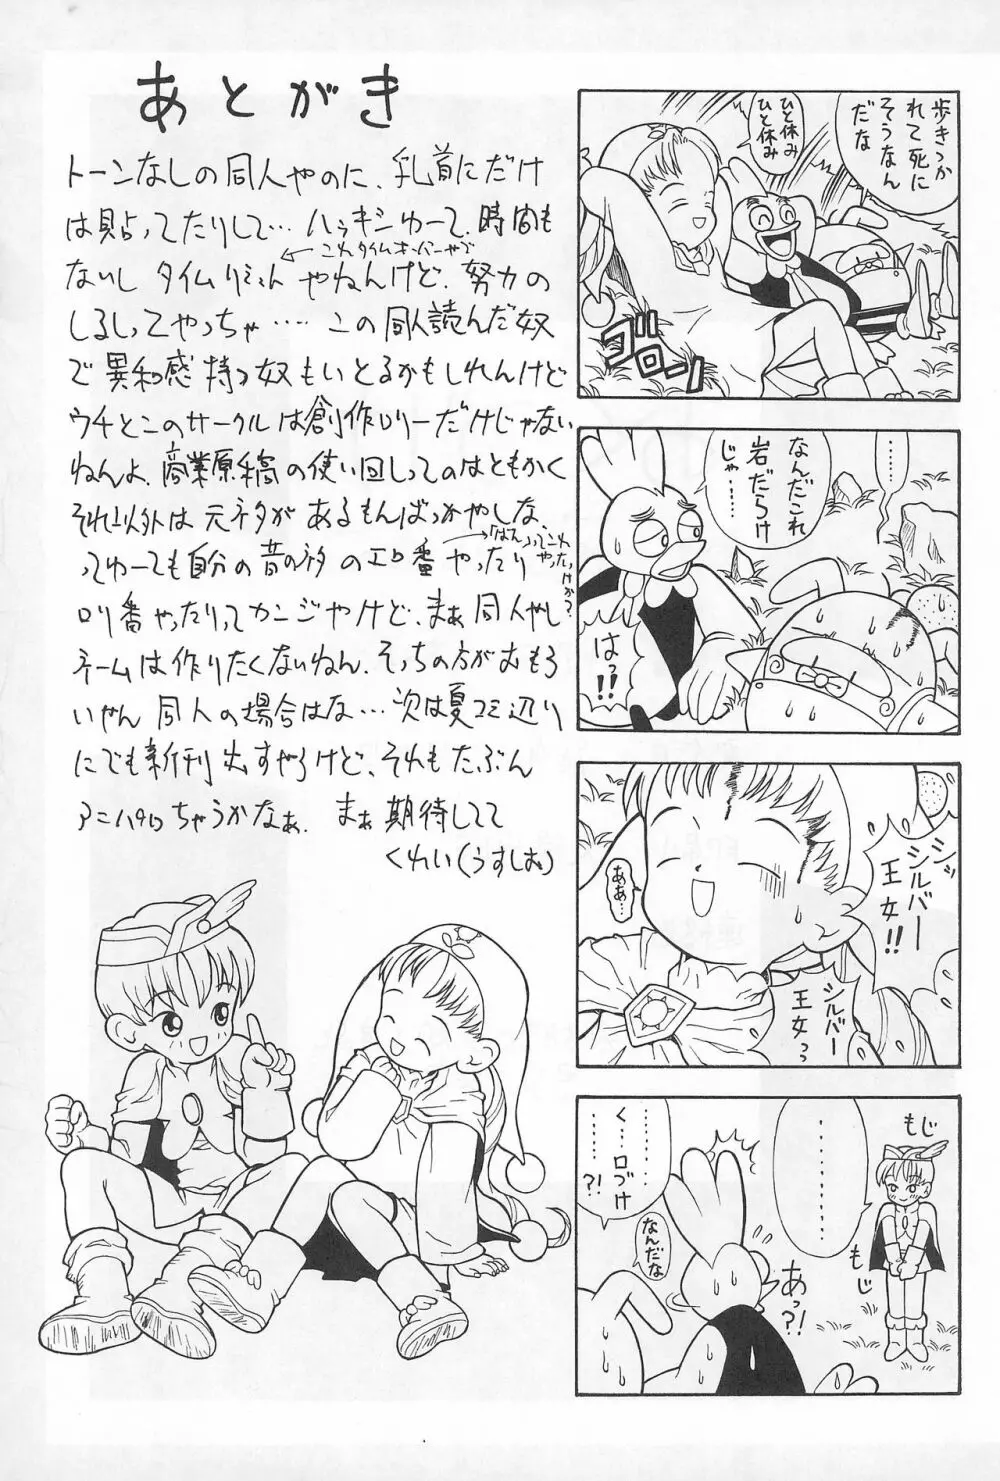 あとがき
トーンなしの同人やのに、乳首にだけ
は貼ってたりして…ハッキシゆーて、時間も
ないし タイムリミット やねんけど、努力の
←これタイムオーバーやで
しるしってやっちゃ…‥この同人読んだ奴
で異和感持つ奴もいとるかもしれんけど
ウチとこのサークルは創作ロリーだけじゃない
ねんよ、商業原稿の使い回しってのはともかく
それ以外は元ネタがあるもんばっかやしな、
ってゆーても自分の昔のネタのエロ番やったり
ロリ番やったりってカンジやけど、まぁ同人やし
ゲームは作りたくないねん、そっちの方がおもろ
いやん 同人の場合はな…次は夏コミ辺り
にでも新刊出すやろけど、それもたぶん
アニパロちゃうかなぁ、まぁ期待してて
くれい(うすしお)
歩きつか
れて死に
そうなん
だな
ひと休み
ひと休み
ゴロ゛ーン
………
なんだこれ
岩だらけ
じゃ……
はっ!!
シッ
シルバー
王女!!
ああ…
シルバー
王女っっ
もじ
もじ
………
………
あっ?!
く…口づけ
……?!
なんだな